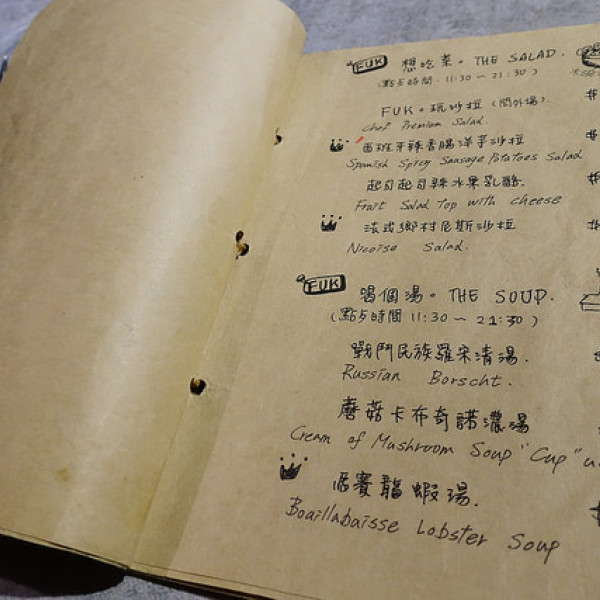 FUK 想吃菜。THE SALAD.
(點点時間 · 11:30 ~ 21:30)
FUK · 玩沙拉 (間外場)
Chef Premium Salad.
西班牙辣香腸洋芋沙拉
Spanish Spicy Sausage Potatoes Salad
起司起司縣水果乳酪.
Fruit Salad Top with cheese
法式鄉村尼斯沙拉
Nicoise Salad.
FUK 喝個湯。THE SOUP.
(點点時間 11:30 ~ 21:30)
戰鬥民族羅宋清湯.
Russian Borscht.
蘑菇卡布奇諾濃湯
Cream of Mushroom Soup "Cup"
馬賽龍蝦湯.
Boaillabaisse Lobster Soup